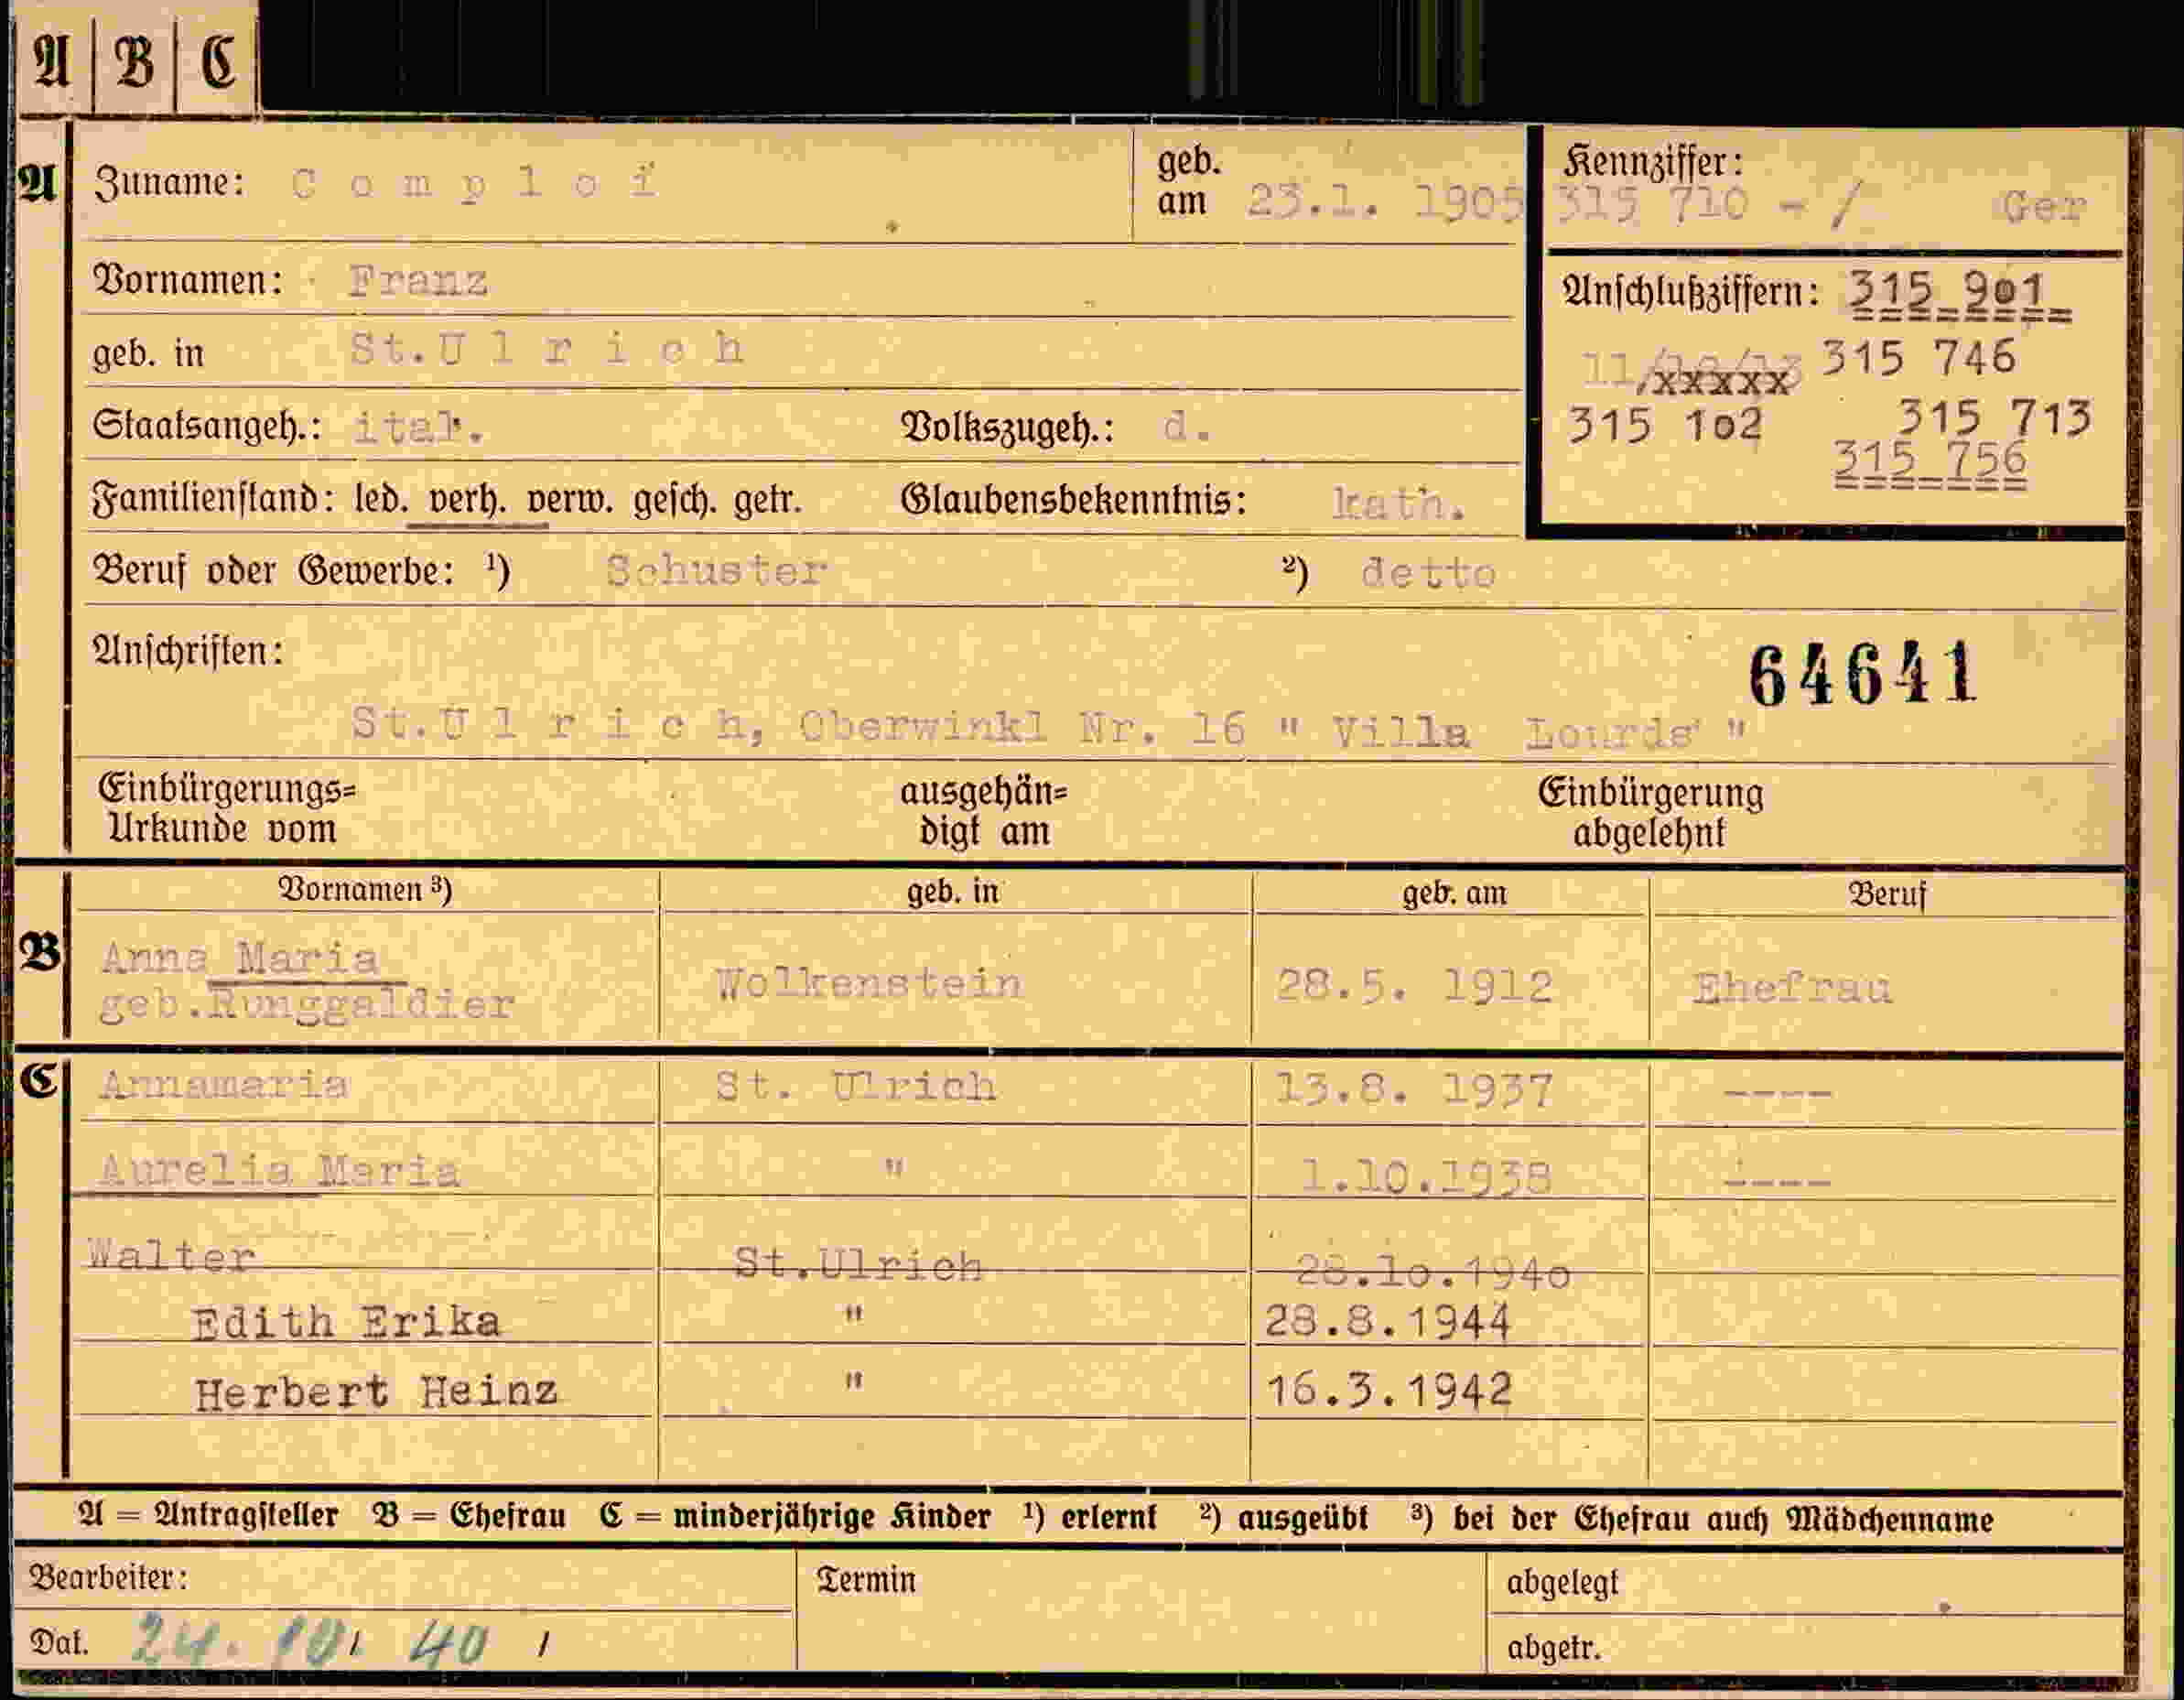 A B C
A
Zuname: C o m p l o i
geb. am 23.1. 1905
Kennziffer: 315 710 - / Ger
Vornamen: Franz
Anschlußziffern: 315 901
geb. in St.U l r i c h
11/ xxxxx 315 746
Staatsangeh.: ital. Volkszugeh.: d.
315 102 315 713
315 756
Familienstand: led. verh. verw. gesch. getr. Glaubensbekenntnis: kath.
Beruf oder Gewerbe: ¹) Schuster ²) detto
Anschriften:
64641
St.U l r i c h, Oberwinkl Nr. 16 " Villa Lourds "
Einbürgerungs=
Urkunde vom
ausgehän=
digt am
Einbürgerung
abgelehnt
Vornamen ³) geb. in geb. am Beruf
B
Anna Maria
geb.Runggaldier Wolkenstein 28.5. 1912 Ehefrau
C
Annamaria St. Ulrich 13.8. 1937 ----
Aurelia Maria " 1.10.1938 ----
Walter St.Ulrich 28.10.1940
Edith Erika " 28.8.1944
Herbert Heinz " 16.3.1942
A = Antragsteller B = Ehefrau C = minderjährige Kinder ¹) erlernt ²) ausgeübt ³) bei der Ehefrau auch Mädchenname
Bearbeiter: Termin abgelegt
Dat. 24. 10. 40 abgetr.